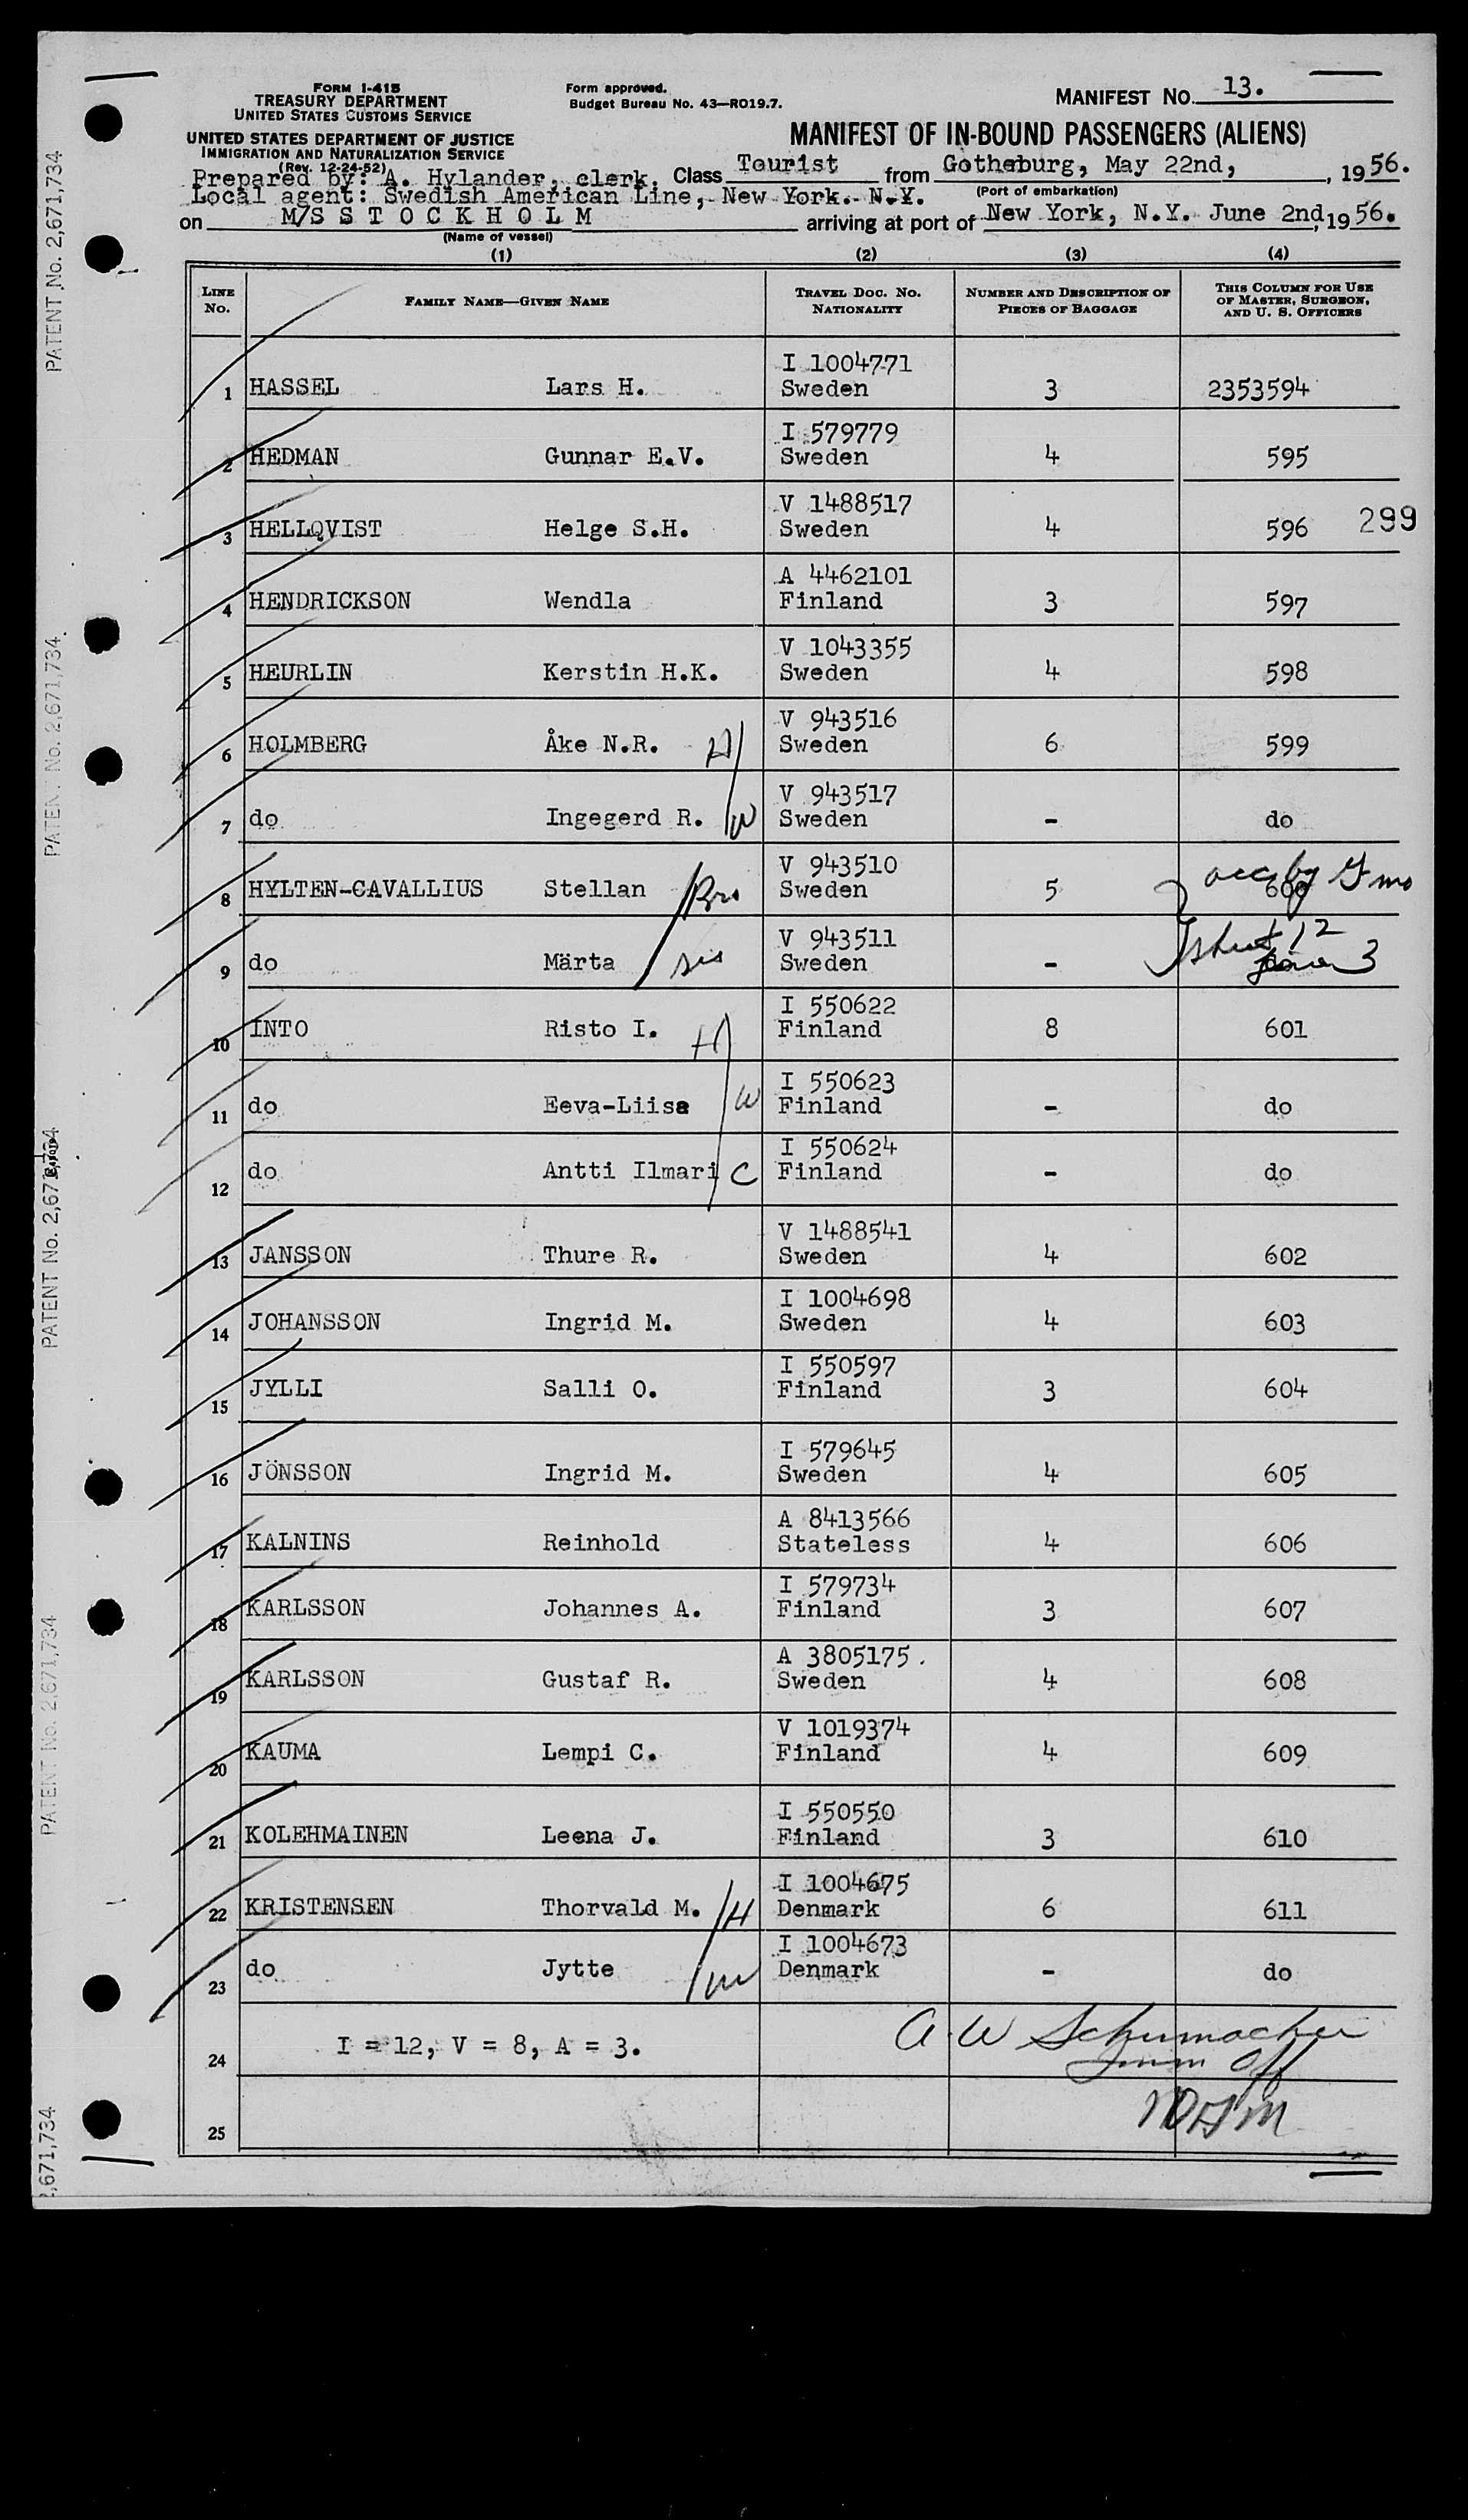 FORM I-415
TREASURY DEPARTMENT
UNITED STATES CUSTOMS SERVICE
UNITED STATES DEPARTMENT OF JUSTICE
IMMIGRATION AND NATURALIZATION SERVICE
(Rev. 12-24-52)
Form approved.
Budget Bureau No. 43—RO19.7.
MANIFEST NO. 13.
MANIFEST OF IN-BOUND PASSENGERS (ALIENS)
Prepared by: A. Hylander, clerk. Class Tourist from Gothenburg, May 22nd, , 1956.
Local agent: Swedish American Line, New York. N.Y. (Port of embarkation)
on M/S S T O C K H O L M arriving at port of New York, N.Y. June 2nd, 1956.
(Name of vessel)
(1) (2) (3) (4)
LINE NO. FAMILY NAME—GIVEN NAME TRAVEL DOC. NO. NATIONALITY NUMBER AND DESCRIPTION OF PIECES OF BAGGAGE THIS COLUMN FOR USE OF MASTER, SURGEON, AND U. S. OFFICERS
I 1004771
1 HASSEL Lars H. Sweden 3 2353594
I 579779
2 HEDMAN Gunnar E.V. Sweden 4 595
V 1488517
3 HELLQVIST Helge S.H. Sweden 4 596 299
A 4462101
4 HENDRICKSON Wendla Finland 3 597
V 1043355
5 HEURLIN Kerstin H.K. Sweden 4 598
V 943516
6 HOLMBERG Åke N.R. H Sweden 6 599
V 943517
7 do Ingegerd R. W Sweden - do
V 943510
8 HYLTEN-CAVALLIUS Stellan Bro Sweden 5 600
V 943511
9 do Märta sis Sweden -
I 550622
10 INTO Risto I. H Finland 8 601
I 550623
11 do Eeva-Liisa W Finland - do
I 550624
12 do Antti Ilmari C Finland - do
V 1488541
13 JANSSON Thure R. Sweden 4 602
I 1004698
14 JOHANSSON Ingrid M. Sweden 4 603
I 550597
15 JYLLI Salli O. Finland 3 604
I 579645
16 JÖNSSON Ingrid M. Sweden 4 605
A 8413566
17 KALNINS Reinhold Stateless 4 606
I 579734
18 KARLSSON Johannes A. Finland 3 607
A 3805175.
19 KARLSSON Gustaf R. Sweden 4 608
V 1019374
20 KAUMA Lempi C. Finland 4 609
I 550550
21 KOLEHMAINEN Leena J. Finland 3 610
I 1004675
22 KRISTENSEN Thorvald M. H Denmark 6 611
I 1004673
23 do Jytte W Denmark - do
24 I = 12, V = 8, A = 3. A W Schumacher
Imm Off
25
PATENT No. 2,671,734
PATENT No. 2,671,734
PATENT No. 2,671,734
PATENT No. 2,671,734
2,671,734